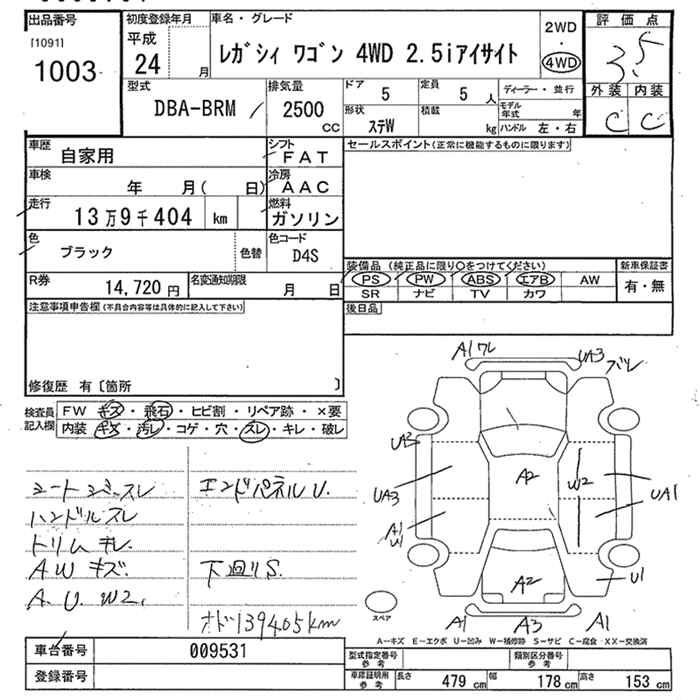 出品番号
[1091]
1003
初度登録年月
平成
24 月
車名・グレード
レガシィ ワゴン 4WD 2.5iアイサイト
2WD
・
4WD
評価点
3.5
外装 内装
C C
型式
DBA-BRM
排気量
2500
CC
ドア
5
定員
5 人
形状
ステW
積載
kg
ディーラー・並行
モデル年式 年
ハンドル 左・右
車歴
自家用
シフト
FAT
車検
年 月( 日)
冷房
AAC
走行
13万9千404 km
燃料
ガソリン
色
ブラック
色替
色コード
D4S
R券
14,720円
名変通知期限
月 日
セールスポイント(正常に機能するものに限ります)
装備品 (純正品に限り○をつけてください)
PS PW ABS エアB AW
SR ナビ TV カワ
新車保証書
有・無
後日品
注意事項申告欄(不具合内容等は具体的に記入して下さい)
修復歴 有〔箇所 〕
検査員記入欄
FW キズ・飛石・ヒビ割・リペア跡・×要
内装 キズ・汚レ・コゲ・穴・スレ・キレ・破レ
ハンドルスレ
トリムキレ
AWキズ
A.U.W2.
エンドパネルU.
下廻りS.
オド139405km
A1ワレ
UA3
ズレ
UA3
A1
U1
A2
W2
UA1
A2
U1
A1
A3
A1
スペア
A-キズ E-エクボ U-凹み W-補修跡 S-サビ C-腐食 XX-交換済
車台番号
009531
登録番号
型式指定番号
参考
類別区分番号
参考
車庫証明用
参考
長さ
479 cm
幅
178 cm
高さ
153 cm